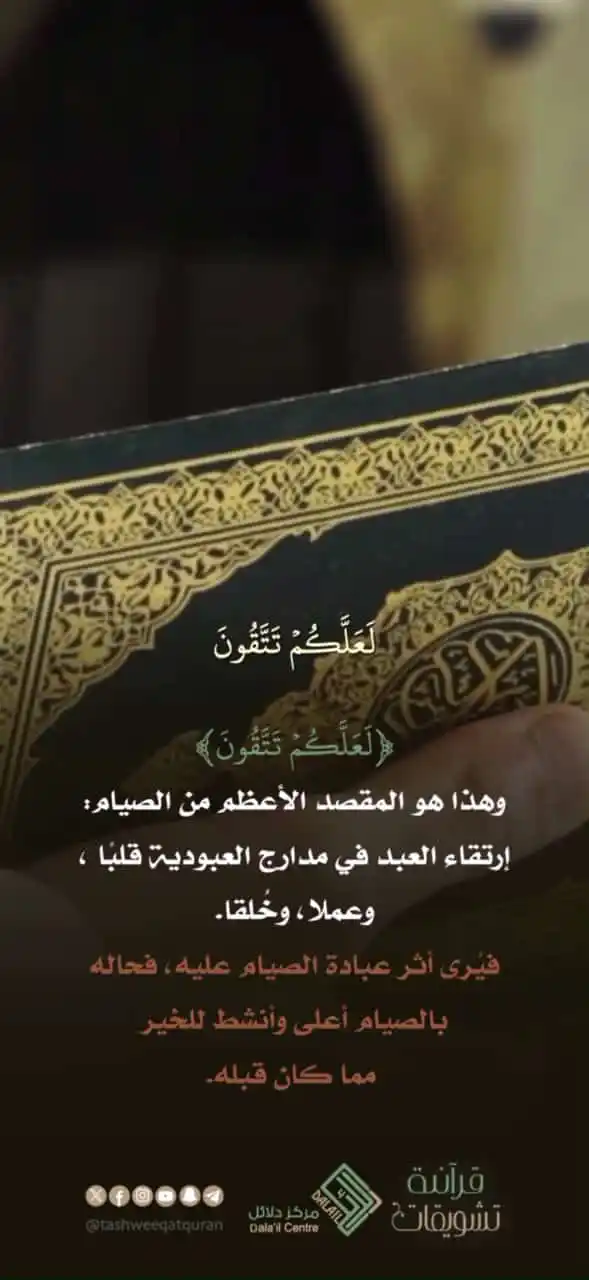 لَعَلَّكُمْ تَتَّقُونَ
﴿لَعَلَّكُمْ تَتَّقُونَ﴾
وهذا هو المقصد الأعظم من الصيام:
إرتقاء العبد في مدارج العبودية قلبًا ،
وعملا، وخُلقا.
فيُرى أثر عبادة الصيام عليه، فحاله
بالصيام أعلى وأنشط للخير
مما كان قبله.
قرآنية
تشويقات
DALA'IL
مركز دلائل
Dala'il Centre
@tashweeqatquran